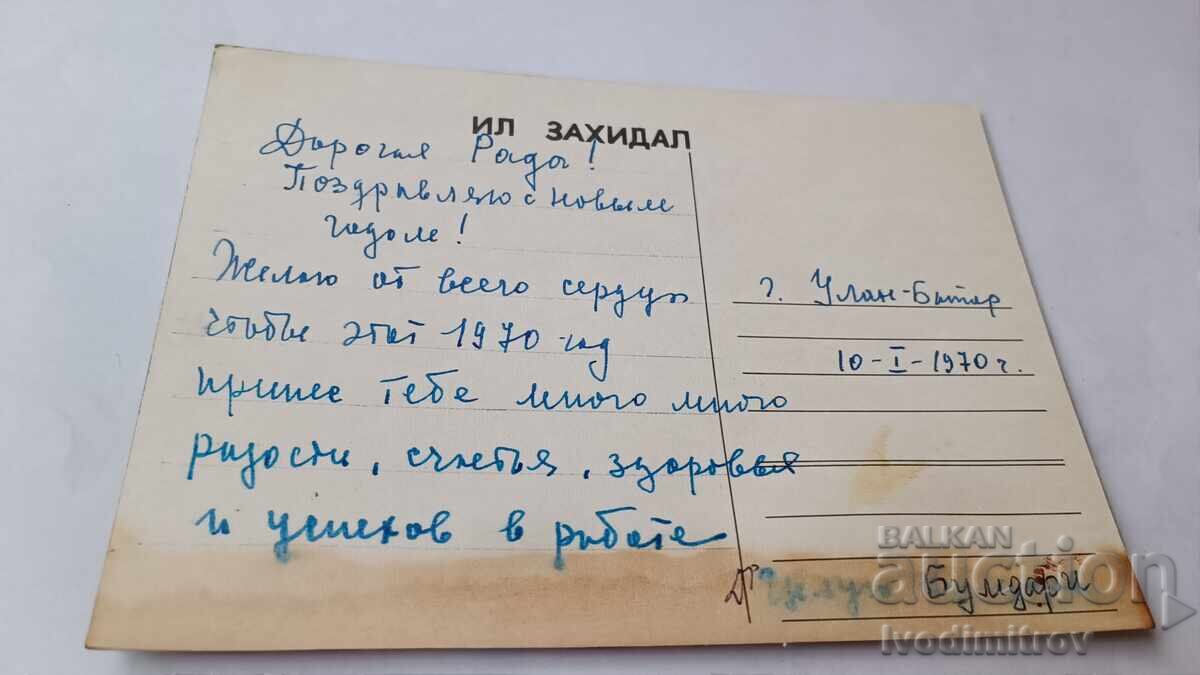 ИЛ ЗАХИДАЛ
Дорогая Рада!
Поздравляю с новым
годом!
Желаю от всего сердца
чтобы этот 1970 год
принес тебе много много
радости, счастья, здоровья
и успехов в работе
г. Улан-Батор
10-I-1970 г.
Бумдари
BALKAN
auction
Ivodimitrov